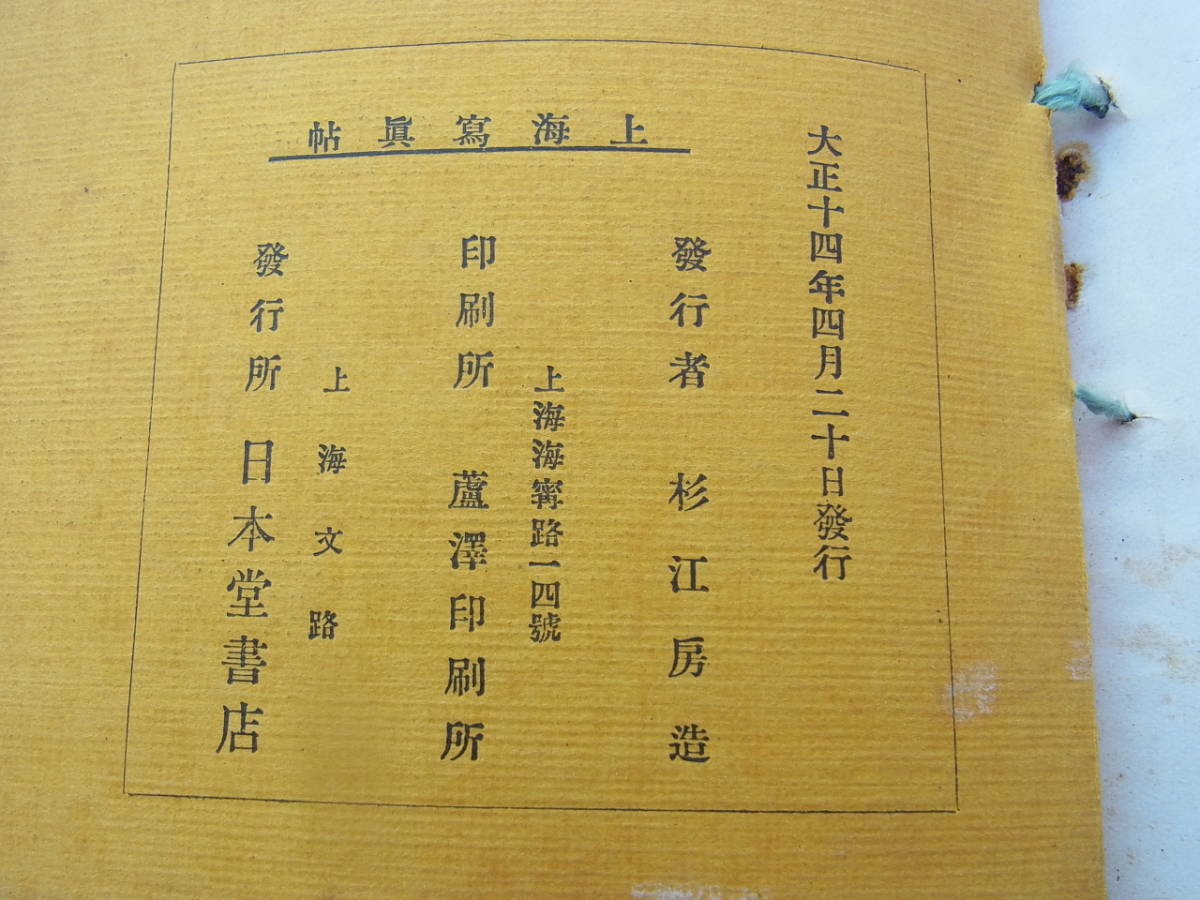 上海寫眞帖
大正十四年四月二十日發行
發行者 杉江房造
上海海寗路一四號
印刷所 蘆澤印刷所
上海文路
發行所 日本堂書店